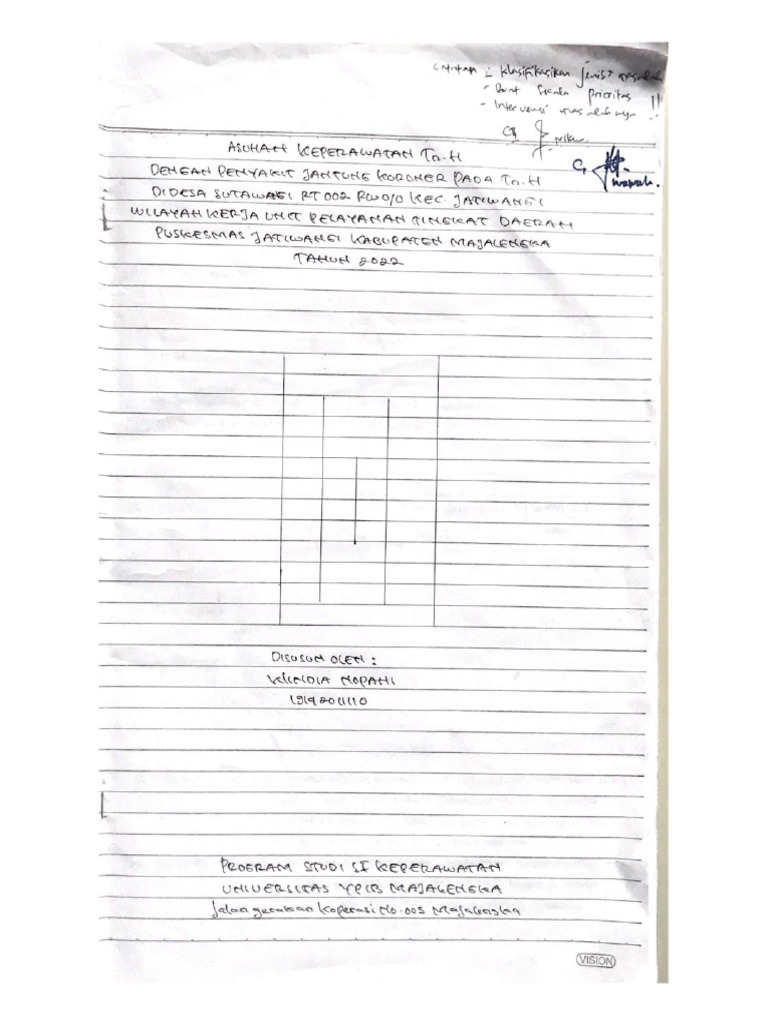 Catatan : klasifikasikan jenis masalah
- Buat Skala prioritas
- Intervensi masalahnya !!
ASUHAN KEPERAWATAN Tn.H
DENGAN PENYAKIT JANTUNG KORONER PADA Tn.H
DI DESA SUTAWANGI RT 002 RW 010 KEC. JATIWANGI
WILAYAH KERJA UNIT PELAYANAN TINGKAT DAERAH
PUSKESMAS JATIWANGI KABUPATEN MAJALENGKA
TAHUN 2022
DISUSUN OLEH :
WINDIA NOPANI
Program STUDI SI KEPERAWATAN
UNIVERSITAS YPIB MAJALENGKA
Jalan gerakan Koperasi No.003 Majalengka
VISION